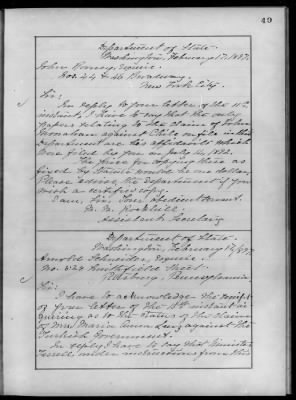 49
Department of State
Washington, February 17, 1897.
John Esquire.
Nos. 44 to 46 Broadway,
New York City.
Sir:
In reply to your letter of the 11th
instant, I have to say that the only
papers relating to the claim of John
Monahan against Chile on file in this
Department are his affidavits which
were filed by you on July 14, 1892.
The price for copying these as
fixed by Statute would be one dollar.
Please advise the Department if you
wish a certified copy.
I am, Sir, Your obedient servant,
W. W. Rockhill
Assistant Secretary
Department of State
Washington, February 17, 1897.
Arnold Schneider, Esquire
No. 324 Smithfield Street
Pittsburg, Pennsylvania
Sir:
I have to acknowledge the receipt
of your letter of the instant in
quiring as to the status of the claim
of Mrs Maria Anna against the
Turkish Government.
In reply I have to say that Minister
Terrell under instructions from this